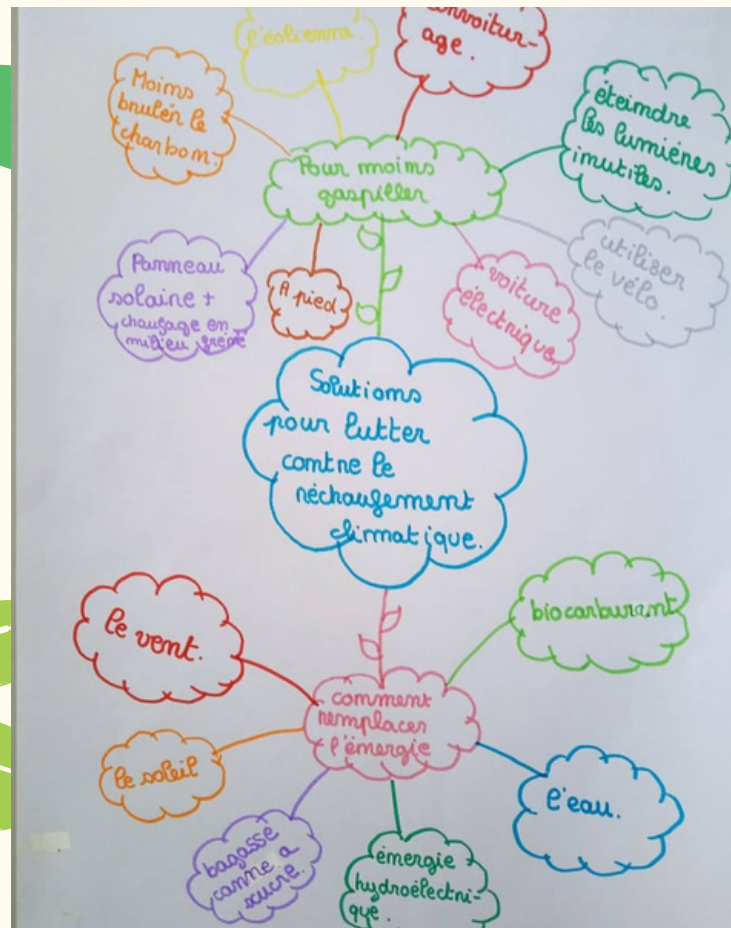 l'éolienne.
convoitur-
age.
Moins
bruler le
charbon.
éteindre
les lumières
inutiles.
Pour moins
gaspiller
Panneau
solaire +
chaufage en
milieu
A pied
voiture
électrique.
utiliser
le vélo.
Solutions
pour lutter
contre le
réchaufement
climatique.
le vent.
biocarburant
comment
remplacer
l'énergie
le soleil
l'eau.
bagasse
canne a
sucre.
énergie
hydroélectri-
que.